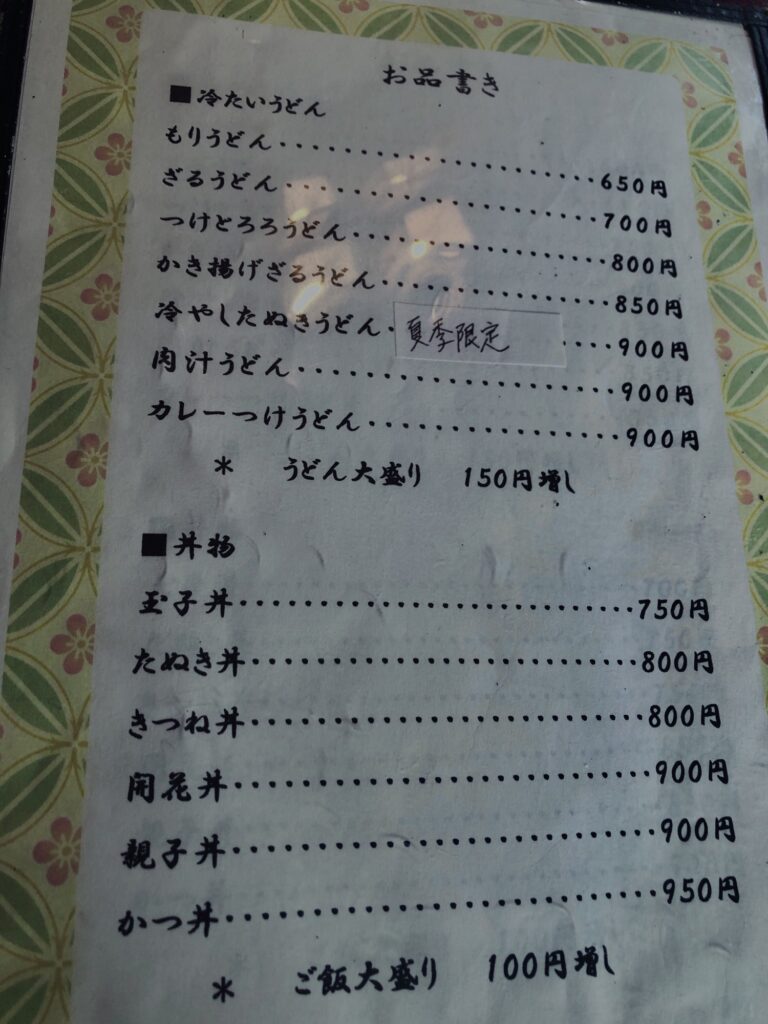 お品書き
■冷たいうどん
もりうどん・・・・・・・・・・・・・・・・・・650円
ざるうどん・・・・・・・・・・・・・・・・・・700円
つけとろろうどん・・・・・・・・・・・・・・・800円
かき揚げざるうどん・・・・・・・・・・・・・・850円
冷やしたぬきうどん・夏季限定・・・・900円
肉汁うどん・・・・・・・・・・・・・・・・・・900円
カレーつけうどん・・・・・・・・・・・・・・・900円
＊ うどん大盛り 150円増し
■丼物
玉子丼・・・・・・・・・・・・・・・・・・・・・・・750円
たぬき丼・・・・・・・・・・・・・・・・・・・・・・800円
きつね丼・・・・・・・・・・・・・・・・・・・・・・800円
開花丼・・・・・・・・・・・・・・・・・・・・・・・900円
親子丼・・・・・・・・・・・・・・・・・・・・・・・900円
かつ丼・・・・・・・・・・・・・・・・・・・・・・・950円
＊ ご飯大盛り 100円増し